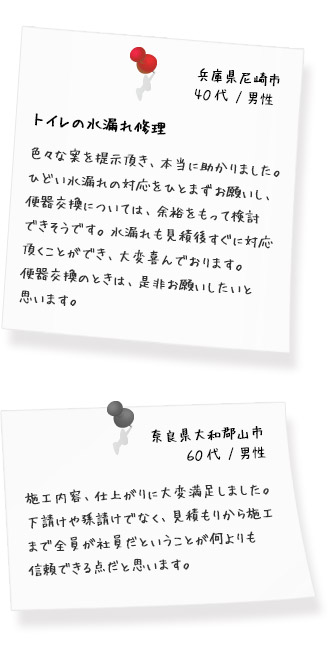 兵庫県尼崎市
40代 / 男性
トイレの水漏れ修理
色々な案を提示頂き、本当に助かりました。
ひどい水漏れの対応をひとまずお願いし、
便器交換については、余裕をもって検討
できそうです。水漏れも見積後すぐに対応
頂くことができ、大変喜んでおります。
便器交換のときは、是非お願いしたいと
思います。
奈良県大和郡山市
60代 / 男性
施工内容、仕上がりに大変満足しました。
下請けや孫請けでなく、見積もりから施工
まで全員が社員だということが何よりも
信頼できる点だと思います。